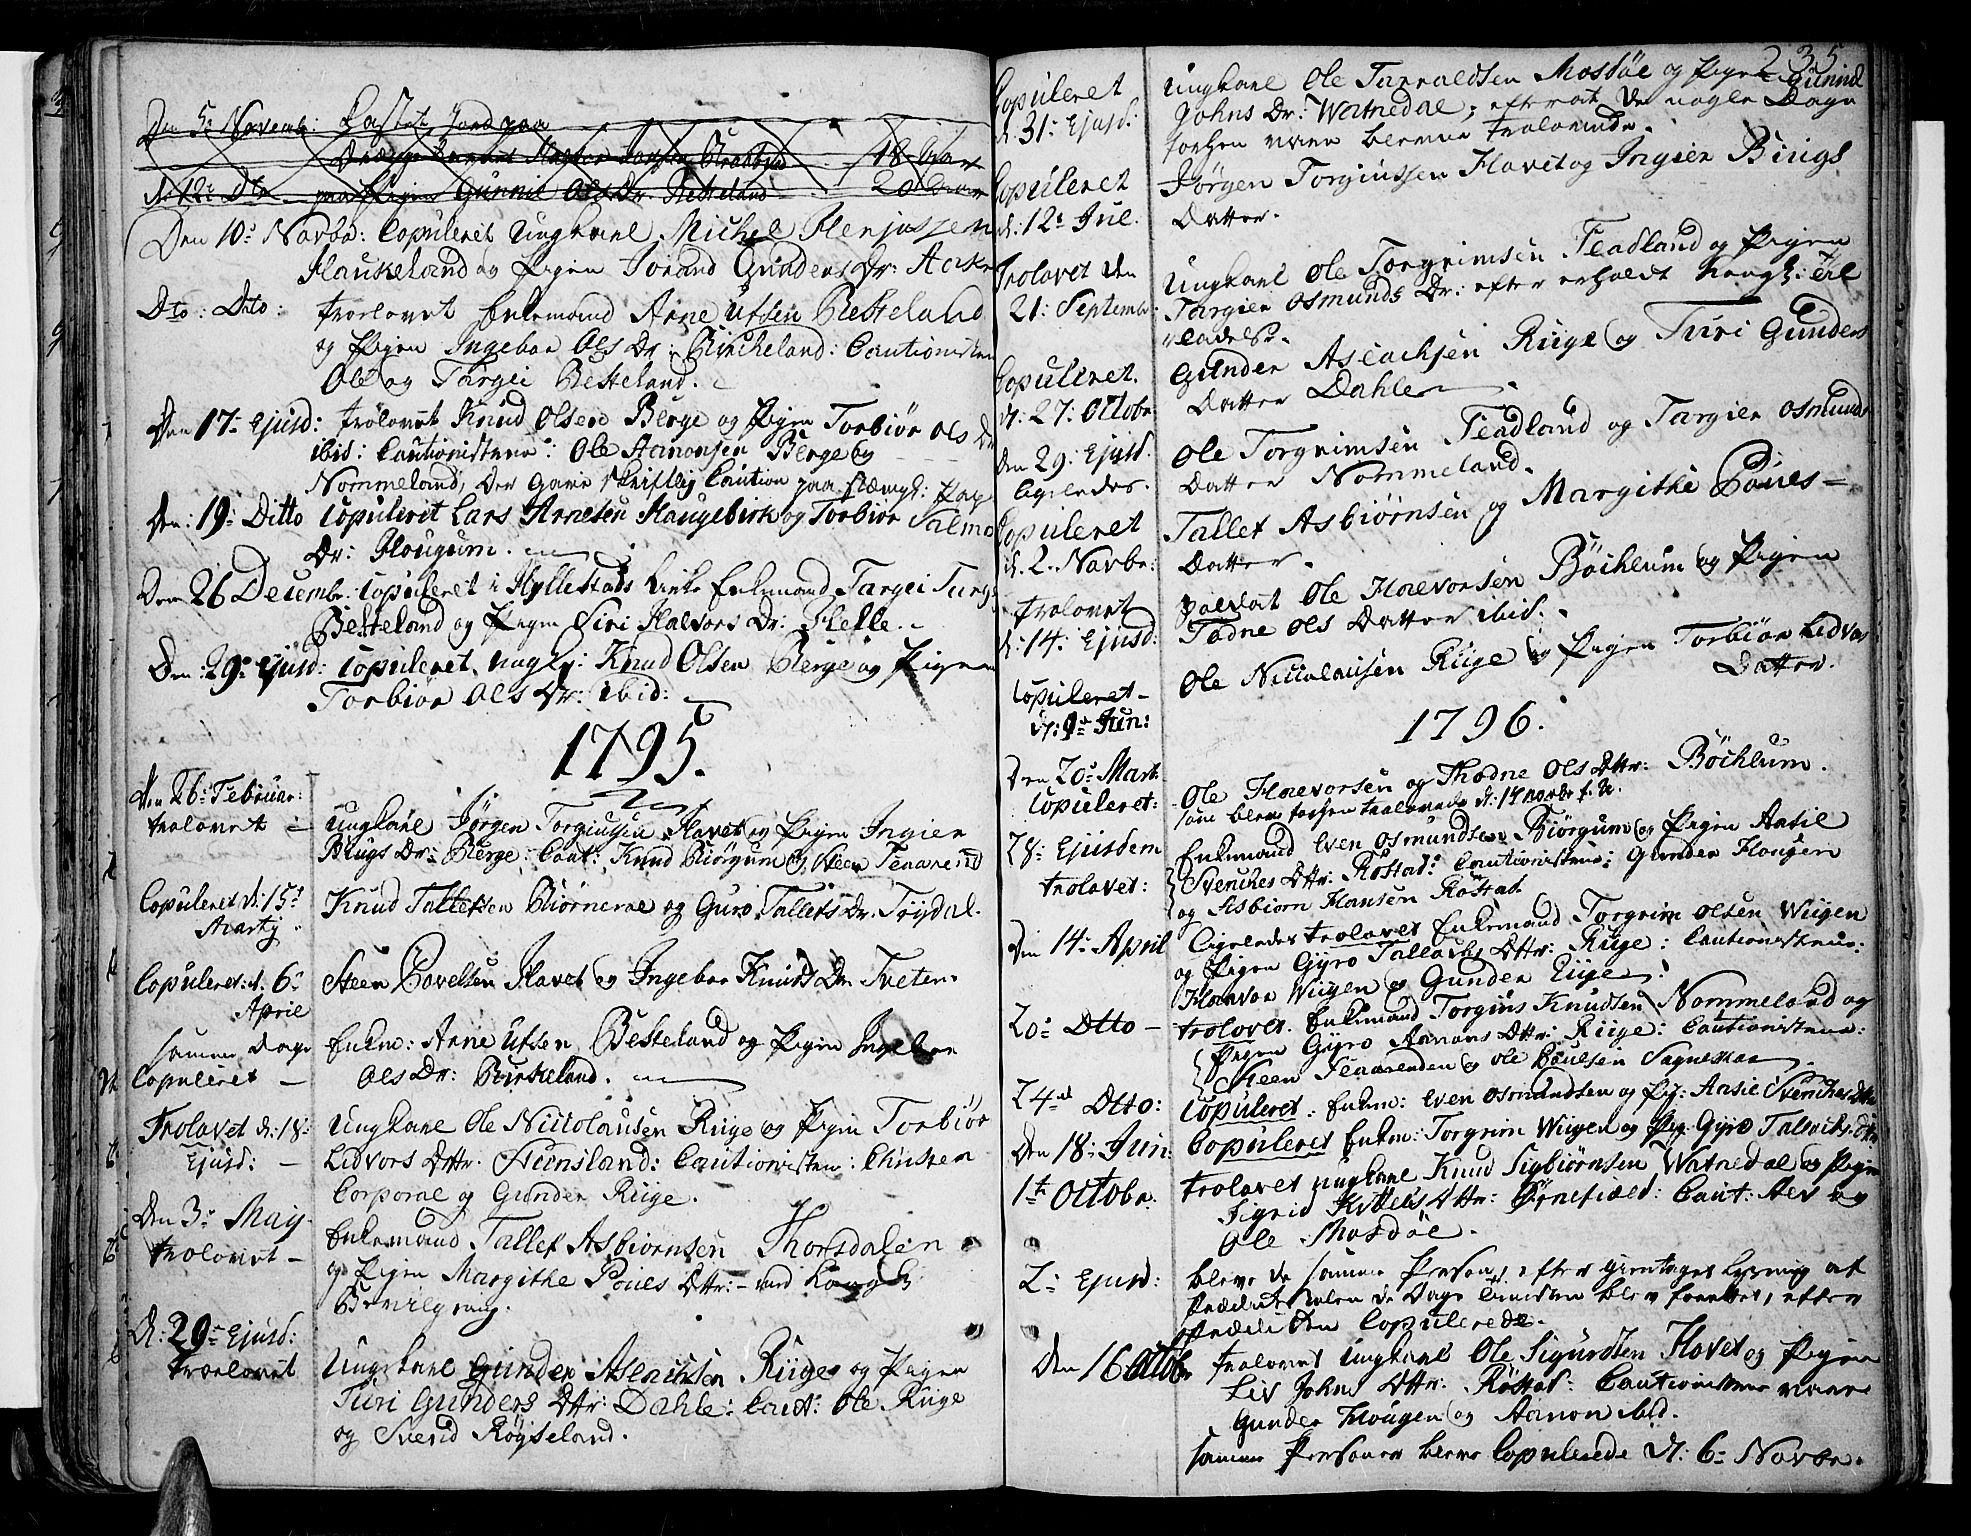 Den 5te Novemb: Castet Jord paa
18
d: 12te Dto paa Pigen Gunnil Ols Dr. Besteland 20
Den 10de Novbr: Copuleret Ungkarl Michel
Haukeland og Pigen Jorand Gunders Dr: Aake
Dto: Dito: trolovet Enkemand Arne Utsen Besteland
og Pigen Ingebor Ols Dr: Birkeland: Cautionisten
Ole og Targei Besteland.
Den 17de Ejusd: trolovet Knud Olsen Berge og Pigen Torbiør Ols Dr
ibid: Cautionisterne: Ole Aanonsen Berge og
Nommeland, der gave skriftlig Caution paa stemplt: Pap
Den: 19de Ditto Copulerit Lars Arnesen Haugebirk og Torbiør Salmo
Dr: Hougum.
Den 26 Decembr. Copuleret i Hyllestads Kirke Enkemand Targei Targ
Besteland og Pigen Siri Halvors Dr: Helle.
Den: 29de Ejusd: Copuleret ungk: Knud Olsen Berge og Pigen
Torbiør Ols Dr: ibid:
1795.
Den 26de Februar: trolovet Ungkarl Jörgen Torgiusen Flavet og Pigen Ingier
Biugs Dr: Berge: Caut: Knud Biörgum og Steen Flaarend
Copuleret d: 15de Marty Knud Talletsen Biörnerae og Guro Tallets Dr. Trydal.
Copuleret d. 6te April Steen Povelsen Flavet og Ingebor Knuds Dr. Tveten.
samme Dage Copuleret Enkm: Arne Utsen Besteland og Pigen Ingebor
Ols Dr: Birkeland.
Trolovet d: 18de Ejusd: Ungkarl Ole Nicolausen Riige og Pigen Torbiör
Lidvors Dttr. Hunsland: Cautionisten: Christen
Corporal og Gunder Riige.
Den 3de May trolovet Enkemand Tallef Asbiörnsen Thorsdalen
og Pigen Margithe Poues Dttr: med Kongl:
Bevilgning.
D: 29de Ejusd: trolovet Ungkarl Gunder Aslachsen Riige og Pigen
Turi Gunders Dttr: Dahle: Caut: Ole Riige
og Svend Röyseland.
235
Copuleret d. 31te Ejusd: Ungkarl Ole Tarraldsen Mosdøl og Pigen Gunnild
Johns Dr: Watnedal, efterat De nogle Dage
forhen vare blevne trolovede.
Copuleret d. 12te Jul. Jörgen Torgiussen Flavet og Ingier Biugs
Datter.
Trolovet den 21: Septembr Ungkarl Ole Torgrimsen Fladland og Pigen
Targier Osmunds Dr: efter erholdt Kongl: til
ladelse.
Copuleret d: 27: Octobr Gunder Aslachsen Riige og Turi Gunders
Datter Dahle
Den 29: Ejusd. ligeledes. Ole Torgrimsen Fladland og Targier Osmunds
Datter Nommeland.
Copuleret d. 2. Novbr: Tallef Asbiörnsen og Margithe Poues-
Datter.
trolovet d: 14: Ejusd: Soldat Ole Halvorsen Böchlum og Pigen
Todne Ols Datter ibid.
Copuleret Jun: Ole Nicolausen Riige og Pigen Torbiör Lidvors
Datter.
1796.
Den 20de Mart. Copuleret: Ole Halvorsen og Thodne Ols Dttr: Böchlum.
som bleve forhen trolovede d: 14 novbr f. A.
28: Ejusdem trolovet: Enkemand Even Osmundsen Biörgum og Pigen Aasil
Svenches Dttr: Röstad: Cautionisterne: Gunder Hougen
og Asbiörn Hansen Röstad
Den 14de April Ligeledes trolovet Enkemand Torgrim Olsen Wiigen
og Pigen Gyro Tallachs Dttr: Riige: Cautionisterne:
Halvor Wiigen og Gunder Riige
20de Dtto trolovet Enkemand Torgius Knudsen Nommeland og
Pigen Gyro Aanons Dttr: Riige: Cautionisterne:
Steen Flaarenden og Ole Poulsen Sagneskar
24de Dtto: Copuleret: Enkm: Even Osmundsen og Pig: Aasil Svenches Dttr
Den 18de Jun: Copuleret Enkm: Torgrim Wiigen og Pig. Gyro Talachs Dttr
1te Octobr: trolovet ungkarl Knud Sigbiörnsen Watnedal og Pigen
Sigrid Kittels Dttr: Örnefield: Caut: Alv og
Ole Mosdøl.
2de Ejusd: bleve de samme Personer, efter
Copulerede.
Den 16 Octobr trolovet Ungkarl Ole Sigurdsen Flavet og Pigen
Liv Johns Dttr. Röstad: Cautionisterne vare
Gunder Hougen og Aanon ibid.
samme Personer bleve Copulerede d: 6te Novbr.